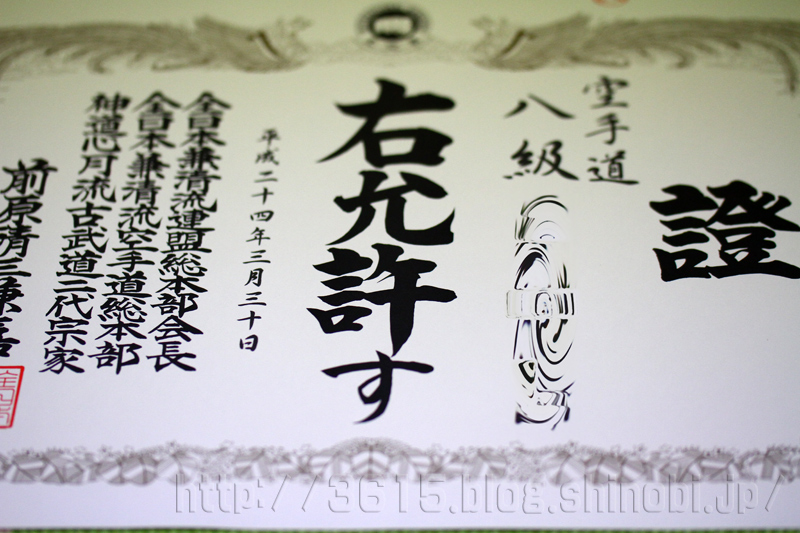 證
空手道
八級
右允許す
平成二十四年三月三十日
全日本兼清流連盟総本部会長
全日本兼清流空手道総本部
神道心月流古武道二代宗家
前原清三兼喜
http://3615.blog.shinobi.jp/